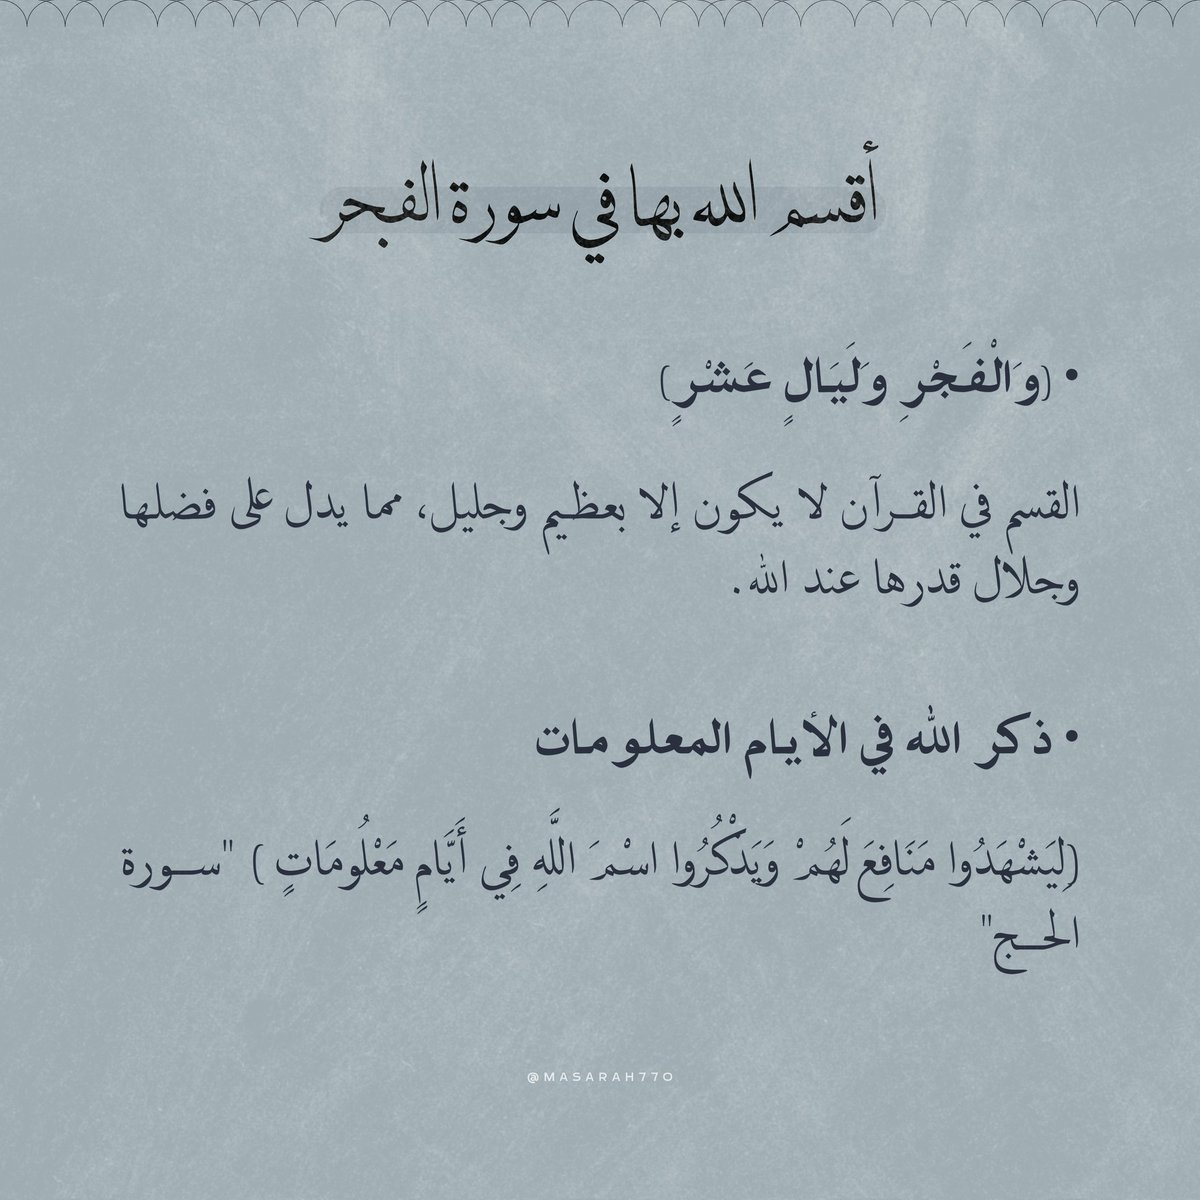 أقسم الله بها في سورة الفجر
• (وَالْفَجْرِ وَلَيَالٍ عَشْرٍ)
القسم في القرآن لا يكون إلا بعظيم وجليل، مما يدل على فضلها
وجلال قدرها عند الله.
• ذكر الله في الأيام المعلومات
(لِيَشْهَدُوا مَنَافِعَ لَهُمْ وَيَذْكُرُوا اسْمَ اللَّهِ فِي أَيَّامٍ مَعْلُومَاتٍ ) "سورة
الحج"
@MASARAH770